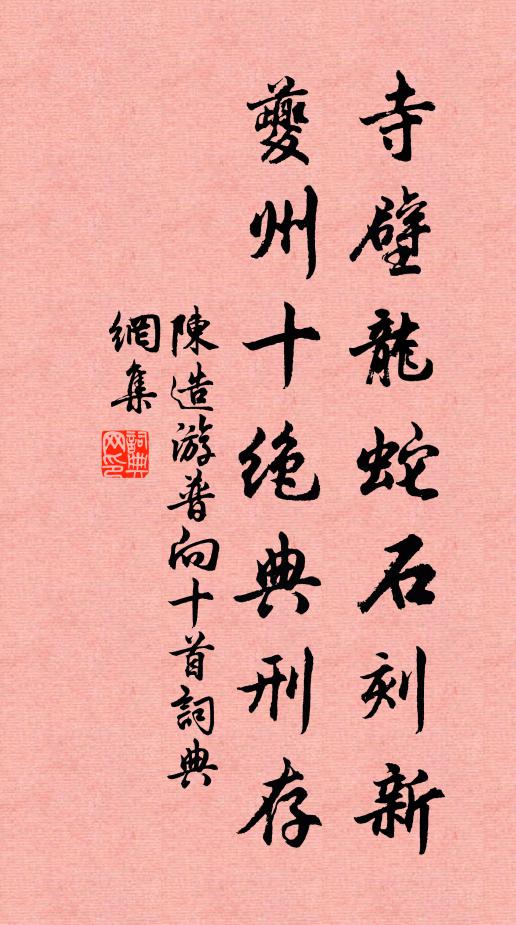 寺壁龍蛇石刻新
夔州十绝典刑存
陳造游普向十首詞典
網集
詞典網印